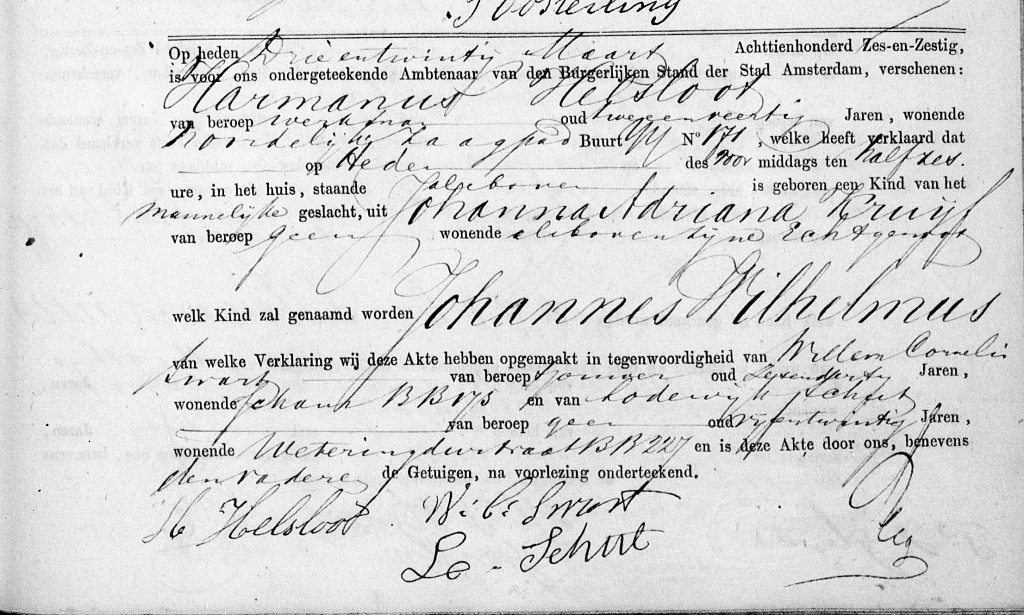 Oosterling
Op heden Drieentwintig Maart Achttienhonderd Zes-en-Zestig,
is voor ons ondergeteekende Ambtenaar van den Burgerlijken Stand der Stad Amsterdam, verschenen:
Harmanus Helsloot
van beroep werkman oud tweeenveertig Jaren, wonende
Zaagpad Buurt YY N° 171, welke heeft verklaard dat
op Heden des voor middags ten half zes
ure, in het huis, staande alsboven is geboren een Kind van het
Mannelijke geslacht, uit Johanna Adriana Kruijf
van beroep geen wonende alsboven zijne Echtgenoot
welk Kind zal genaamd worden Johannes Wilhelmus
van welke Verklaring wij deze Akte hebben opgemaakt in tegenwoordigheid van Willem Cornelis
Swart van beroep oud Jaren,
wonende schans BB 175 en van Lodewijk Schut
van beroep geen oud vijfentwintig Jaren,
wonende Weteringdwstraat BB 227 en is deze Akte door ons, benevens
den vader en de Getuigen, na voorlezing onderteekend.
H Helsloot W: C: Swart
L. Schut